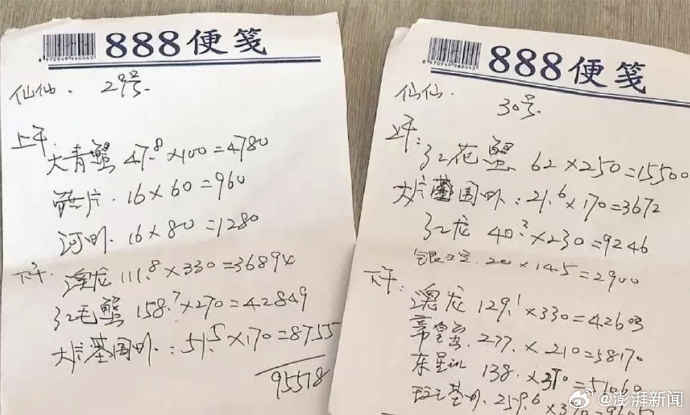 888便笺
仙仙. 29号.
上午: 大青蟹 47.8×100=4780
片. 16×60=960
河虾. 16×80=1280
下午: 澳龙 111.8×330=36894
红毛蟹 158.7×270=42849
大基围虾: 51.5×170=8755
95518
888便笺
仙仙. 30号.
上午: 红花蟹 62×250=15500
大基围虾: 21.6×170=3672
红龙 40.2×230=9246
20×145=2900
下午: 澳龙 129.1×330=42603
277.×210=58170
东星斑 138.×370=51060
基虾. 259.6×
@澎湃新闻